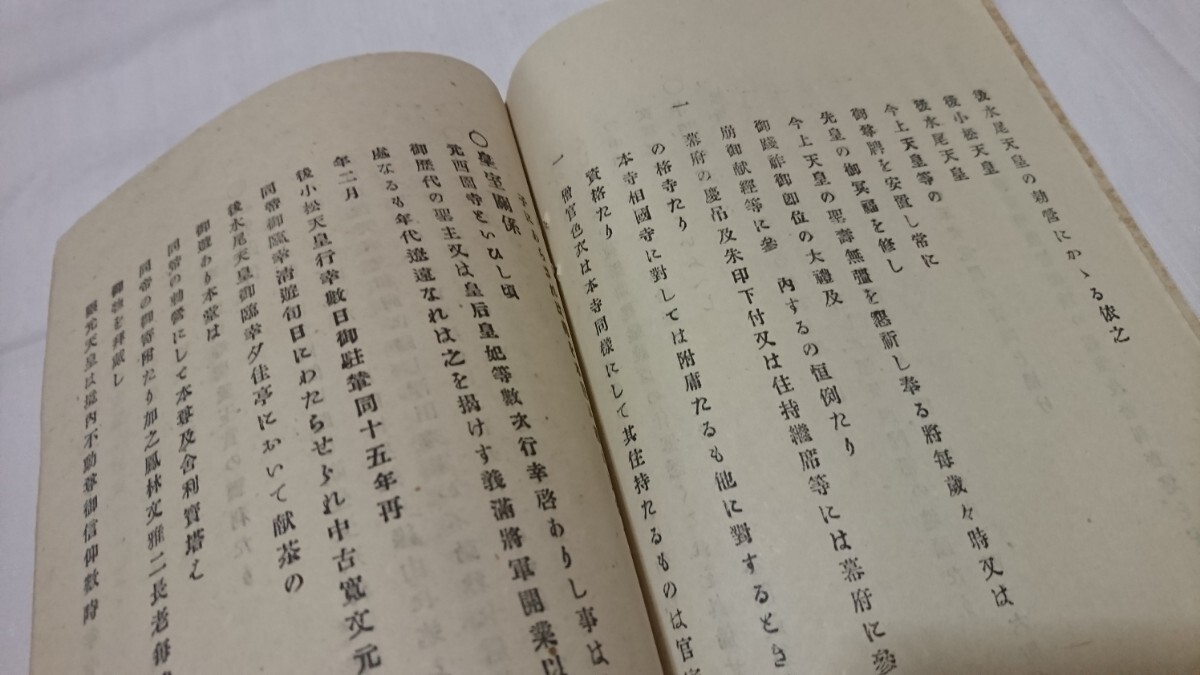 後水尾天皇の勅營にかゝる依之
後小松天皇
後水尾天皇
今上天皇等の
御尊牌を安置し常に
先皇の御冥福を修し
今上天皇の聖壽無疆を懇祈し奉る將每歲々時又は
御踐祚御卽位の大禮及
崩御献經等に參 內するの恒例たり
一 幕府の慶吊及朱印下付又は住持繼席等には幕府に參
の格寺たり
本寺相國寺に對しては附庸たるも他に對するとき
資格たり
一 僧官色衣は本寺同樣にして其住持たるものは官
〇皇室關係
元西園寺といひし頃
御歷代の聖主又は皇后皇妃等數次行幸啓ありし事は
處なるも年代遼遠なれは之を揭けす義滿將軍開業以
年二月
後小松天皇行幸數日御駐輦同十五年再
同帝御臨幸淹遊旬日にわたらせられ中古寬文元
後水尾天皇御臨幸夕佳亭において献茶の
御遊あり本堂は
同帝の勅營にして本尊及舍利寶塔は
同帝の御寄附たり加之鳳林文雅二長老每
御物を拜戴し
靈元天皇は境內不動尊御信仰數時